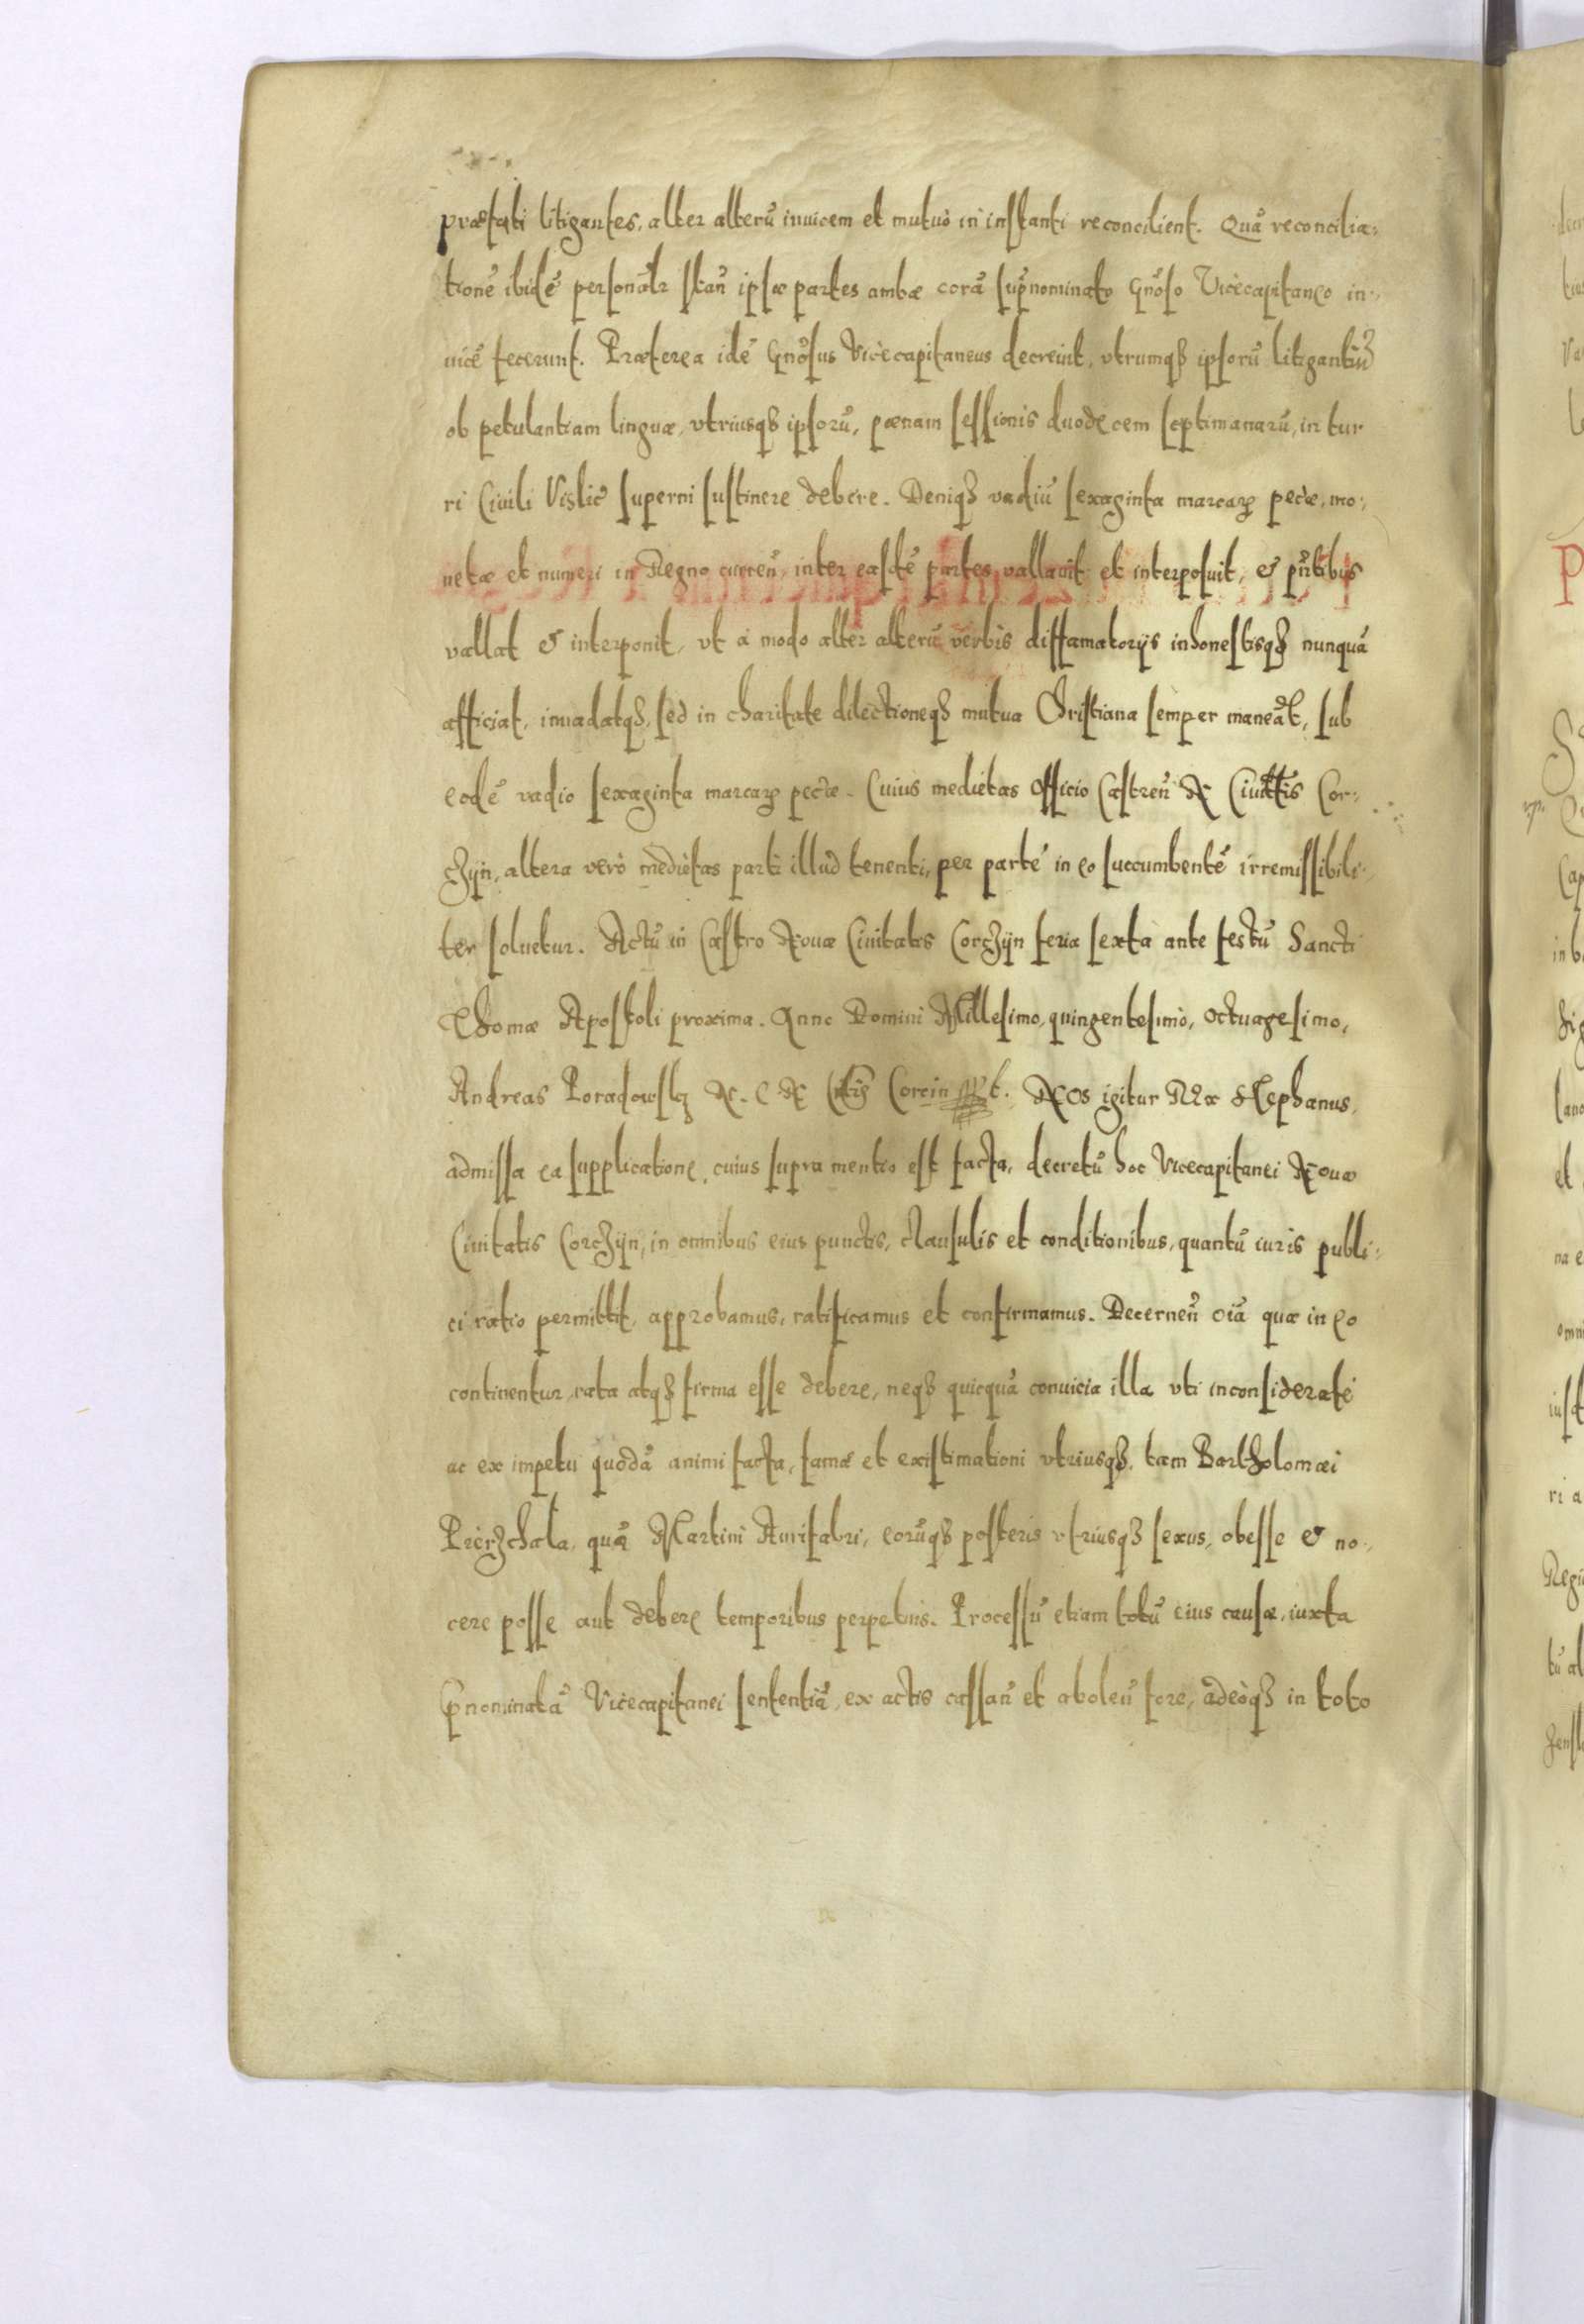 præfati litigantes, alter alterũ inuicem et mutuò in instanti reconcilient. Quã reconcilia:
tionẽ ibidẽ personalr stañ ipsæ partes ambæ corã supnominato Gnõso Vicecapitaneo in:
uicẽ fecerunt. Præterea idẽ Gnõsus Vicecapitaneus decreuit, vtrumqȝ ipsorũ litigantiũ
ob petulantiam linguæ, vtriusqȝ ipsorũ, pœnam sessionis duodecem septimanarũ, in tur
ri Ciuili Vislic̃ superni sustinere debere. Deniqȝ vadiũ sexaginta marcaꝝ pecæ, mo:
netæ et numeri in Regno curreñ, inter easdẽ partes vallauit et interposuit, & pñtibus
vallat & interponit, vt à modo alter alterũ verbis diffamatorijs inhonestisqȝ nunquã
afficiat, inuadatqȝ, sed in charitate dilectioneqȝ mutua Christiana semper maneãt, sub
eodẽ vadio sexaginta marcaꝝ pecæ. Cuius medietas Officio Castreñ N Ciuittis Cor:
czyn, altera verò medietas parti illud tenenti, per partẽ in eo succumbentẽ irremissibili:
ter soluetur. Actũ in Castro Nouæ Ciuitatis Corczyn feria sexta ante festũ Sancti
Thomæ Apostoli proxima. Anno Domini Millesimo, quingentesimo, octuagesimo,
Andreas Poradowsky N. C N Corcin Nos igitur Rex Stephanus,
admissa ea supplicatione, cuius supra mentio est facta, decretũ hoc Vicecapitanei Nouæ
Ciuitatis Corczyn, in omnibus eius punctis, clausulis et conditionibus, quantũ iuris publi:
ci ratio permittit, approbamus, ratificamus et confirmamus. Decerneñ oiã quæ in eo
continentur, rata atqȝ firma esse debere, neqȝ quicquã conuicia illa vti inconsideratè
ac ex impetu quodã animi facta, famæ et existimationi vtriusqȝ, tam Bartholomæi
Pierzchala, quã Martini Aurifabri, eorũqȝ posteris vtriusqȝ sexus, obesse & no:
cere posse aut debere temporibus perpetuis. Processũ etiam totũ eius causæ, iuxta
pnominatã Vicecapitanei sententiã, ex actis cassañ et aboleñ fore, adeòqȝ in toto